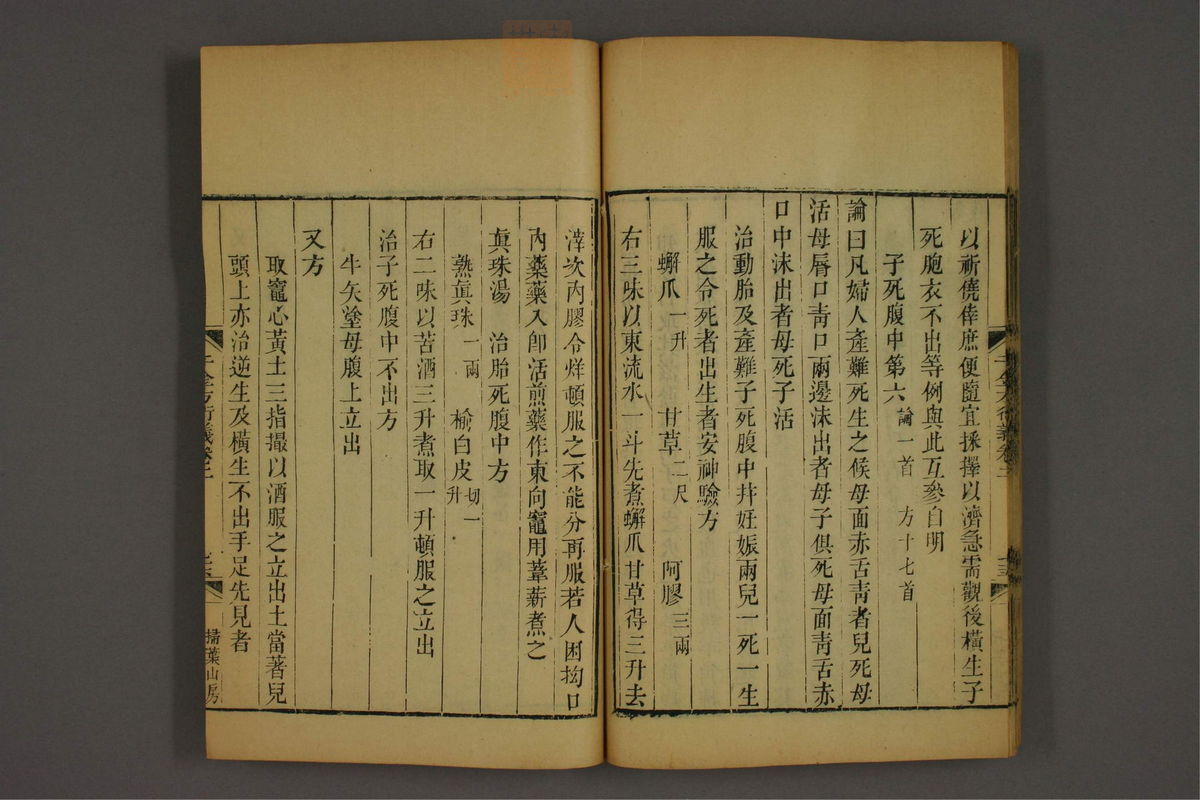 以祈僥倖庶便隨宜採擇以濟急需觀後橫生子
死胞衣不出等例與此互參自明
子死腹中第六 論一首 方十七首
論曰凡婦人產難死生之候母面赤舌靑者兒死母
活母脣口靑口兩邊沫出者母子俱死母面靑舌赤
口中沫出者母死子活
治動胎及產難子死腹中幷妊娠兩兒一死一生
服之令死者出生者安神驗方
蠏爪一升 甘草二尺 阿膠三兩
右三味以東流水一斗先煮蠏爪甘草得三升去
滓次內膠令烊頓服之不能分再服若人困拗口
內藥藥入卽活煎藥作東向竈用葦薪煮之
眞珠湯 治胎死腹中方
熟眞珠一兩 榆白皮切一升
右二味以苦酒三升煮取一升頓服之立出
治子死腹中不出方
牛矢塗母腹上立出
又方
取竈心黃土三指撮以酒服之立出土當著兒
頭上亦治逆生及橫生不出手足先見者
千金方衍義卷二
掃葉山房